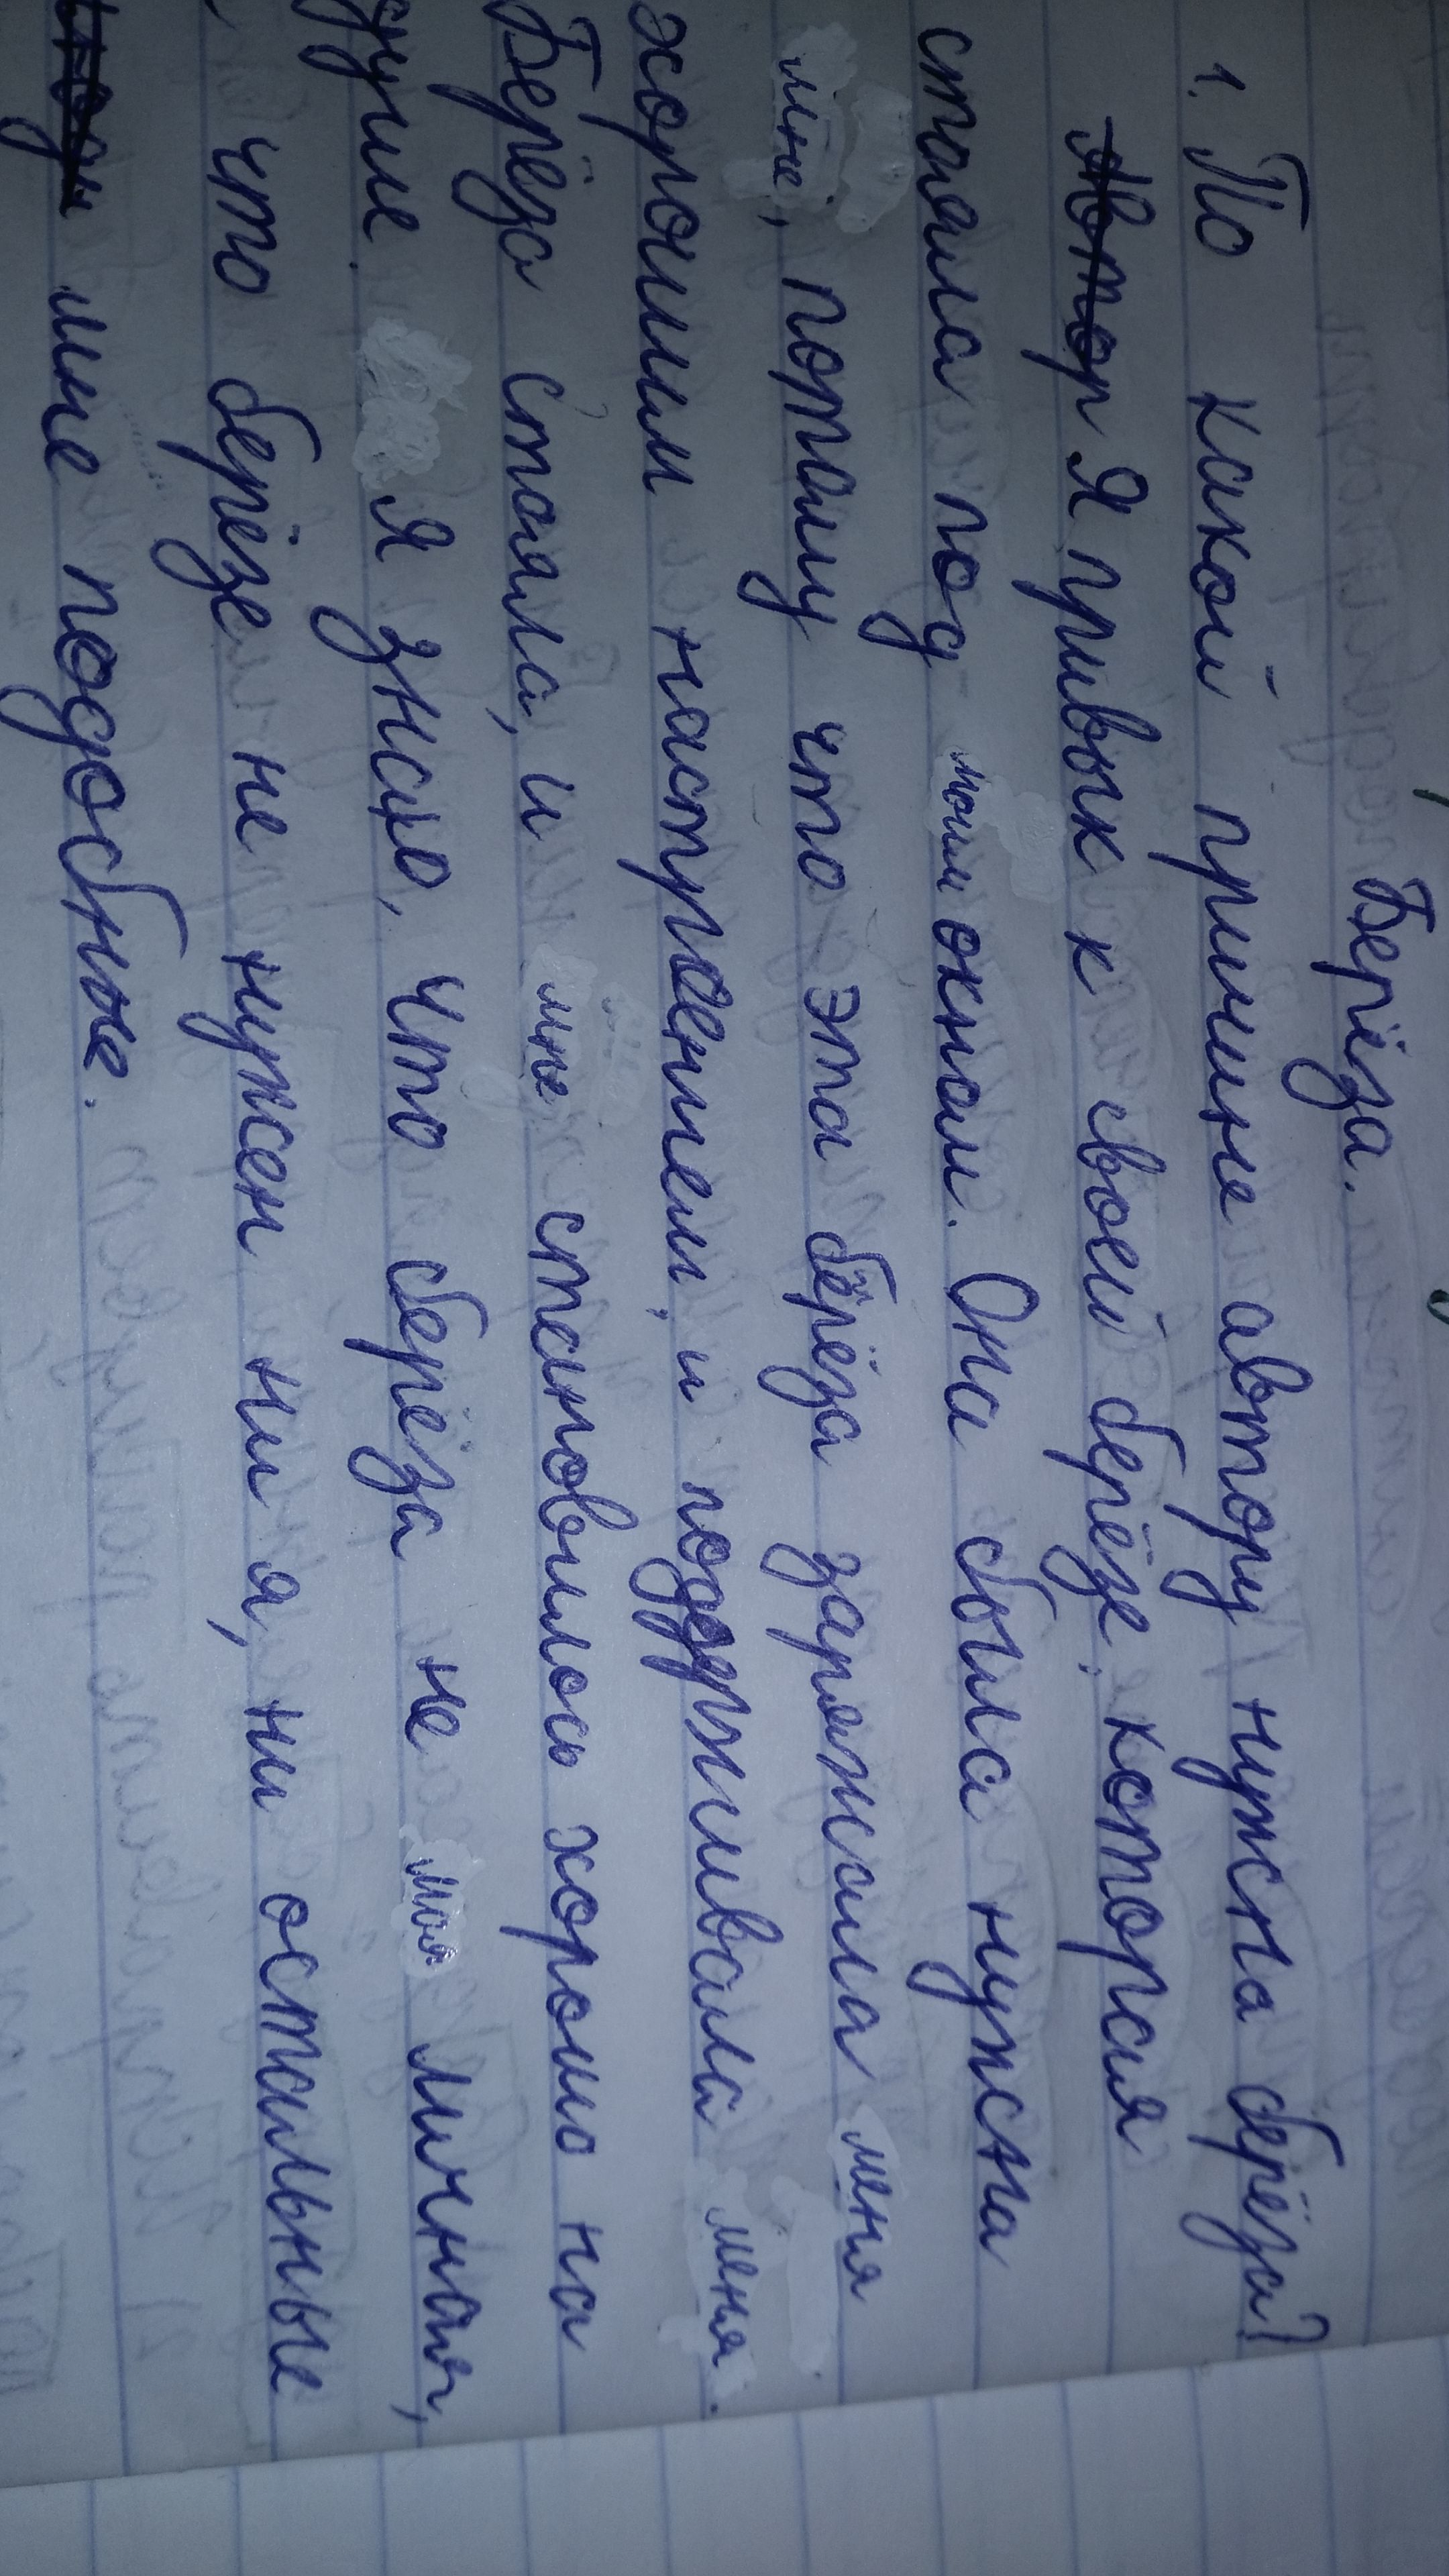 Берёза.
1. По какой причине автору нужна берёза?
Автор Я привык к своей берёзе, которая
стояла под моим окном. Она была нужна
мне, потому что эта берёза заряжала меня
хорошим настроением, и поддрживала меня.
Берёза стояла, и мне становилось хорошо на
душе. Я знаю, что берёза не моя личная,
, что берёзе не нужен ни я, ни остальные
мне подобные.